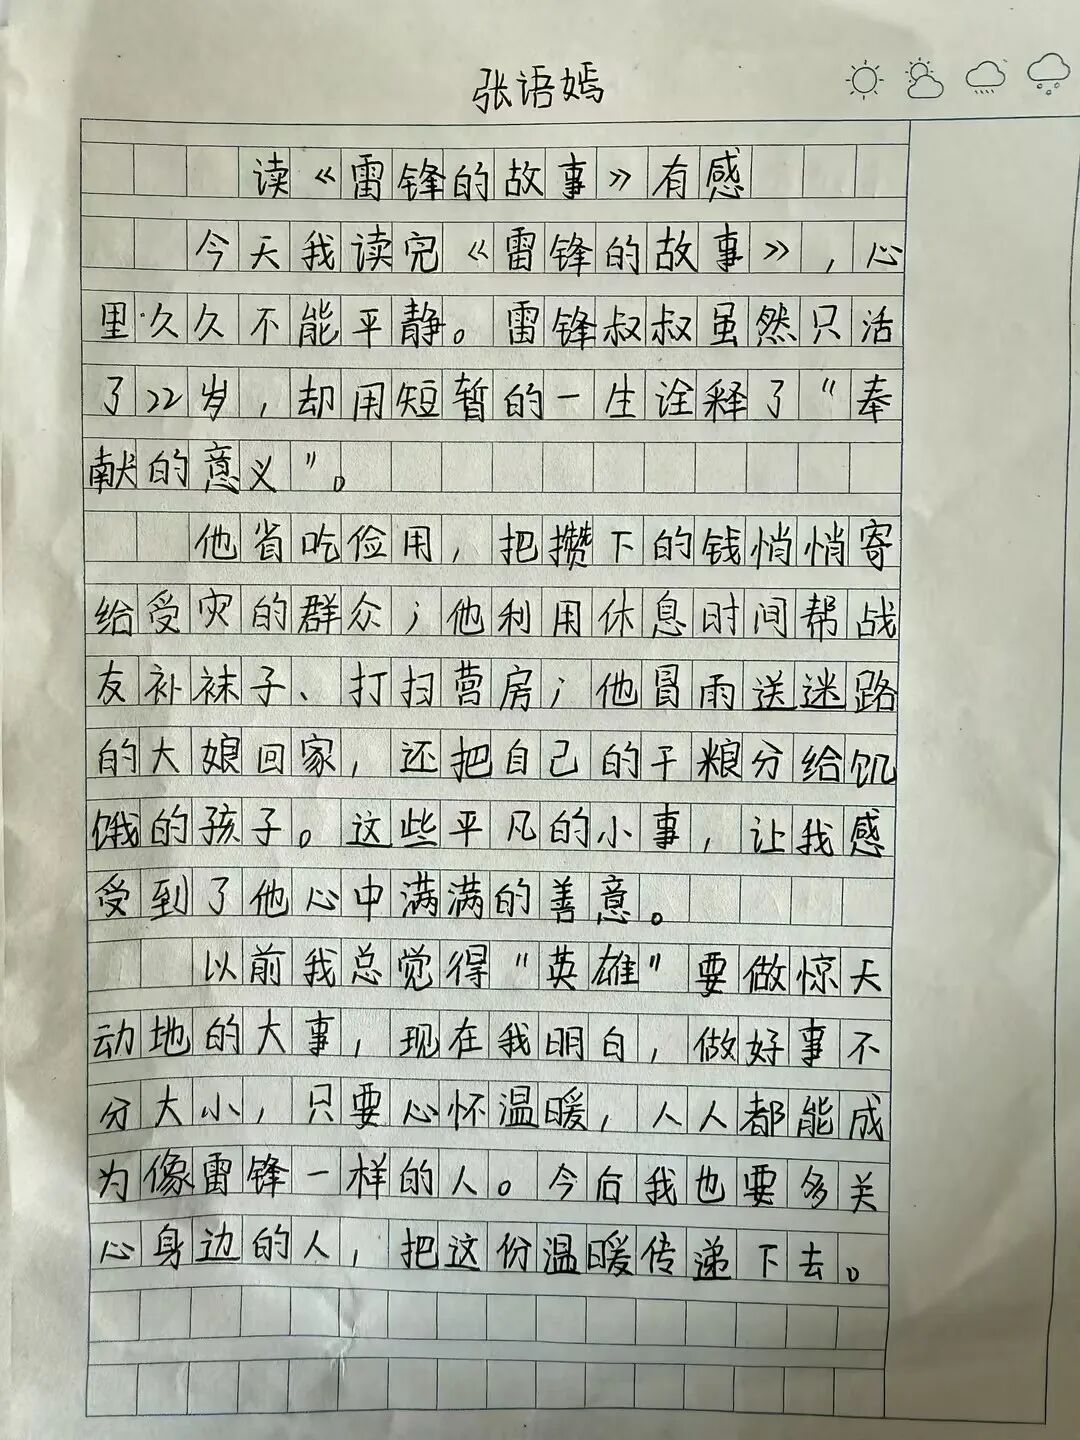 张语嫣
读《雷锋的故事》有感
今天我读完《雷锋的故事》，心
里久久不能平静。雷锋叔叔虽然只活
了22岁，却用短暂的一生诠释了“奉
献的意义”。
他省吃俭用，把攒下的钱悄悄寄
给受灾的群众；他利用休息时间帮战
友补袜子、打扫营房；他冒雨送迷路
的大娘回家，还把自己的干粮分给饥
饿的孩子。这些平凡的小事，让我感
受到了他心中满满的善意。
以前我总觉得“英雄”要做惊天
动地的大事，现在我明白，做好事不
分大小，只要心怀温暖，人人都能成
为像雷锋一样的人。今后我也要多关
心身边的人，把这份温暖传递下去。